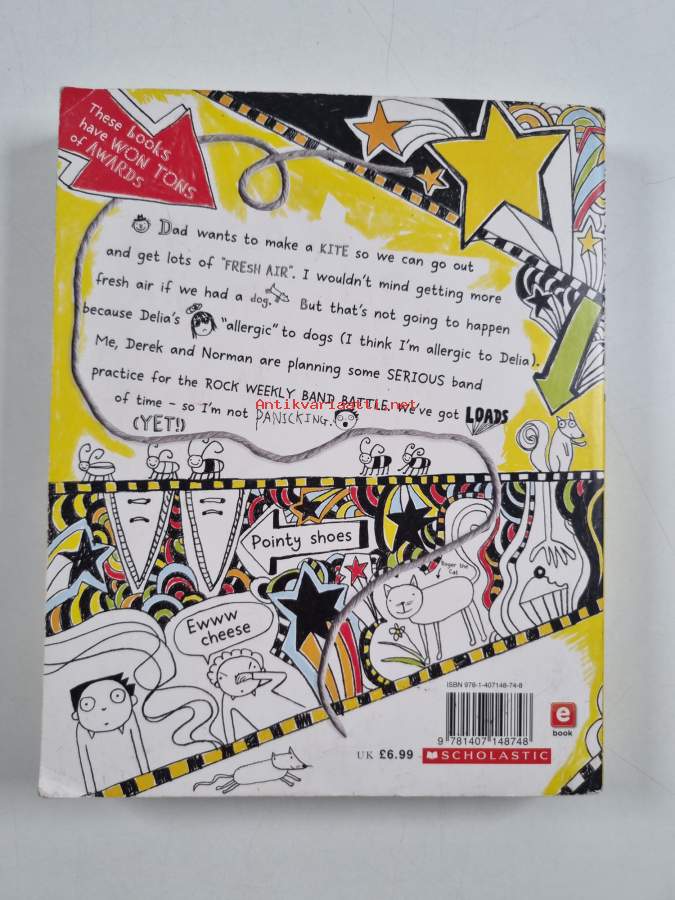 These books
have WON TONS
of AWARDS
Dad wants to make a KITE so we can go out
and get lots of "FRESH AIR". I wouldn't mind getting more
fresh air if we had a dog. But that's not going to happen
because Delia's "allergic" to dogs (I think I'm allergic to Delia).
Me, Derek and Norman are planning some SERIOUS band
practice for the ROCK WEEKLY BAND BATTLE. We've got LOADS
of time - so I'm not PANICKING.
(YET!)
Antikvariaatti.net
Pointy shoes
Roger the
Cat
Ewww
cheese
ISBN 978-1-407148-74-8
9 781407 148748
e
book
UK £6.99
SCHOLASTIC